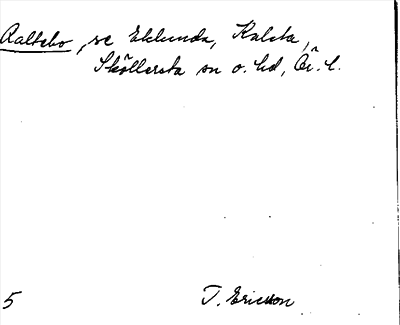 Aaltebo, se Eklunda, Kalsta,
Sköllersta sn o. hd, Ör. l.
5 T. Ericsson